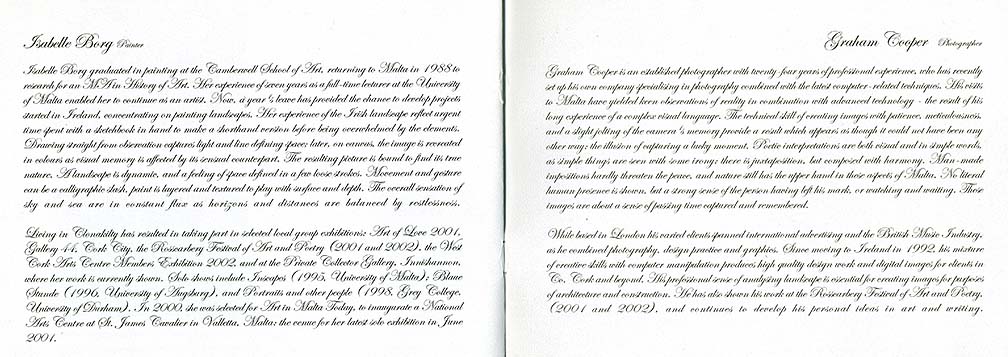 Isabelle Borg Painter
Isabelle Borg graduated in painting at the Camberwell School of Art, returning to Malta in 1988 to
research for an MA in History of Art. Her experience of seven years as a full-time lecturer at the University
of Malta enabled her to continue as an artist. Now, a year's leave has provided the chance to develop projects
started in Ireland, concentrating on painting landscapes. Her experience of the Irish landscape reflect urgent
time spent with a sketchbook in hand to make a shorthand version before being overwhelmed by the elements.
Drawing straight from observation captures light and line defining space; later, on canvas, the image is recreated
in colours as visual memory is affected by its sensual counterpart. The resulting picture is bound to find its true
nature. A landscape is dynamic, and a feeling of space defined in a few loose strokes. Movement and gesture
can be a calligraphic slash, paint is layered and textured to play with surface and depth. The overall sensation of
sky and sea are in constant flux as horizons and distances are balanced by restlessness.
Living in Clonakilty has resulted in taking part in selected local group exhibitions: Art of Love 2001,
Gallery 44, Cork City, the Rosscarbery Festival of Art and Poetry (2001 and 2002), the West
Cork Arts Centre Members Exhibition 2002, and at the Private Collector Gallery, Innishannon,
where her work is currently shown. Solo shows include Inscapes (1995, University of Malta); Blaue
Stunde (1996, University of Augsburg), and Portraits and other people (1998, Grey College,
University of Durham). In 2000, she was selected for Art in Malta Today, to inaugurate a National
Arts Centre at St. James Cavalier in Valletta, Malta; the venue for her latest solo exhibition in June
2001.
Graham Cooper Photographer
Graham Cooper is an established photographer with twenty-four years of professional experience, who has recently
set up his own company specialising in photography combined with the latest computer-related techniques. His visits
to Malta have yielded keen observations of reality in combination with advanced technology - the result of his
long experience of a complex visual language. The technical skill of creating images with patience, meticulousness,
and a slight jolting of the camera's memory provide a result which appears as though it could not have been any
other way; the illusion of capturing a lucky moment. Poetic interpretations are both visual and in simple words,
as simple things are seen with some irony; there is juxtaposition, but composed with harmony. Man-made
impositions hardly threaten the peace, and nature still has the upper hand in these aspects of Malta. No literal
human presence is shown, but a strong sense of the person having left his mark, or watching and waiting. These
images are about a sense of passing time captured and remembered.
While based in London his varied clients spanned international advertising and the British Music Industry,
as he combined photography, design practice and graphics. Since moving to Ireland in 1992, his mixture
of creative skills with computer manipulation produces high quality design work and digital images for clients in
Co. Cork and beyond. His professional sense of analysing landscape is essential for creating images for purposes
of architecture and construction. He has also shown his work at the Rosscarbery Festival of Art and Poetry,
(2001 and 2002), and continues to develop his personal ideas in art and writing.